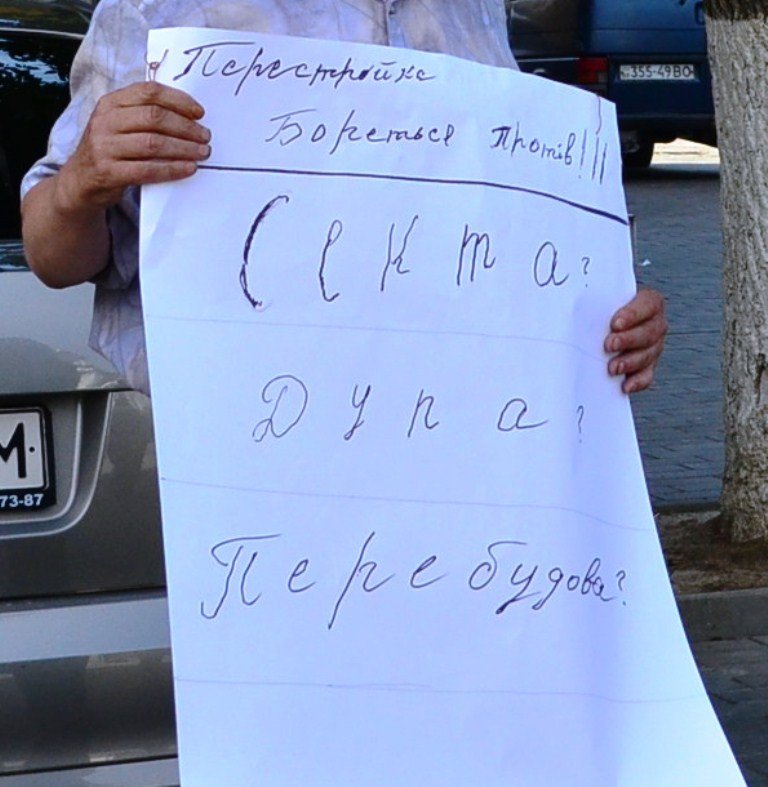 Перестройка
Бореться Протів!!!
Секта?
Дупа?
Перебудова?
355-49ВО
М
73-87